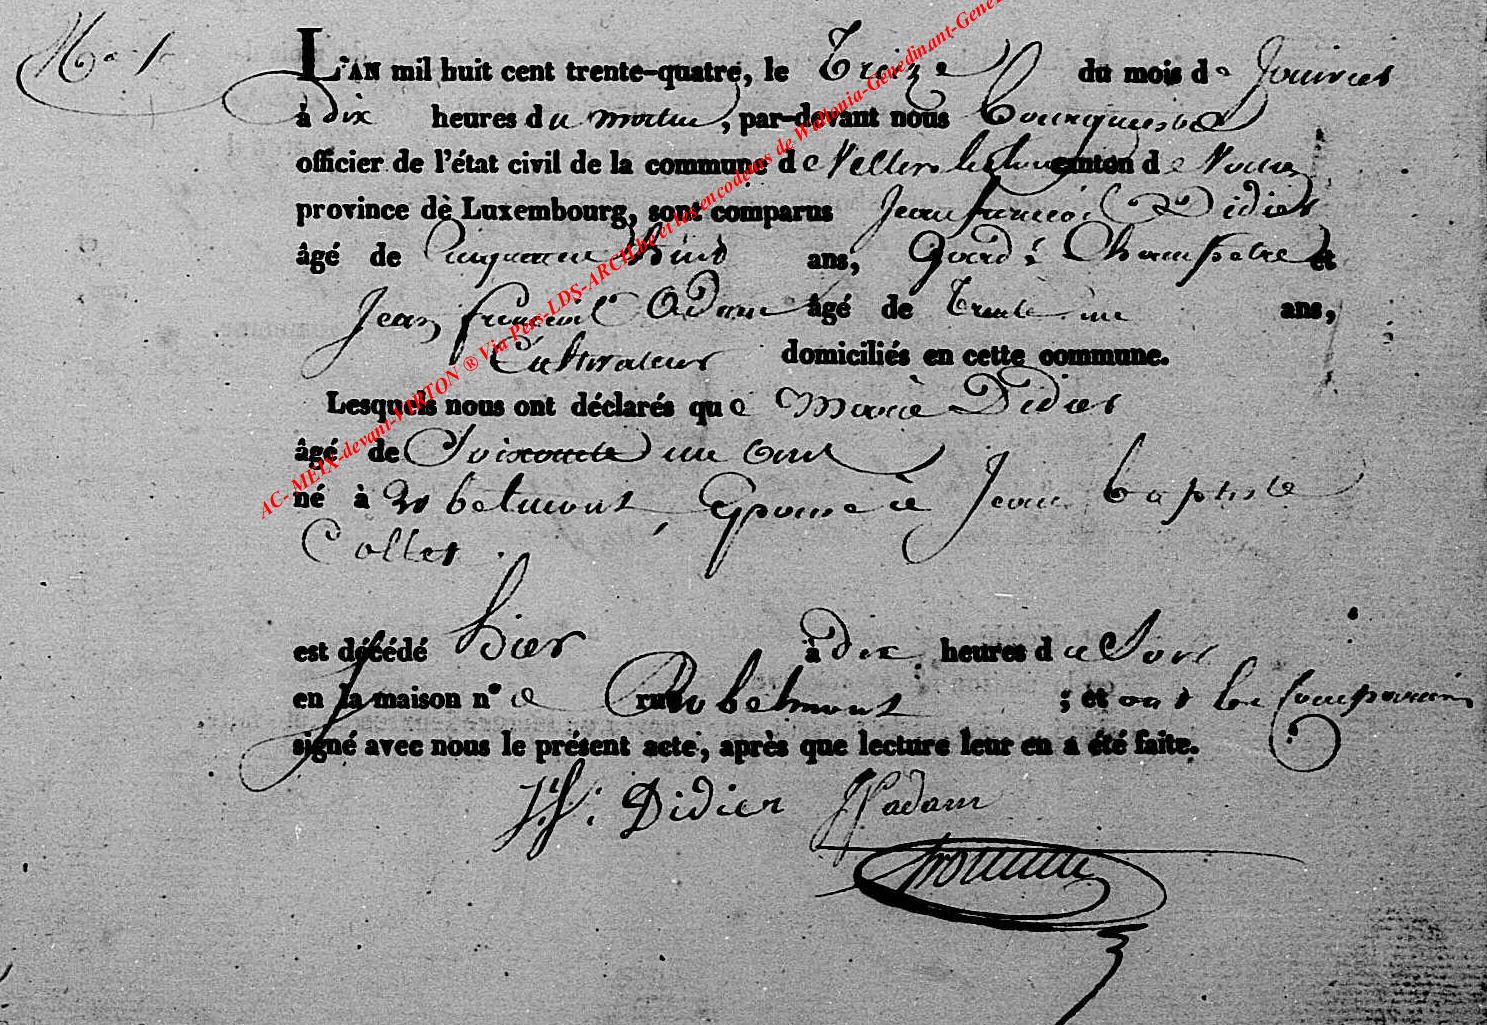 No 1
L'AN mil huit cent trente-quatre, le Treize du mois de Janvier
à dix heures du matin, par-devant nous Bourguesbal
officier de l'état civil de la commune de Villers la loue canton de Virton
province de Luxembourg, sont comparus Jean françois Didier
âgé de Cinquante huit ans, Garde Champetre et
Jean françois Adam âgé de Trente un ans,
Cultivateur domiciliés en cette commune.
Lesquels nous ont déclarés que Marie Didier
âgé de Soixante un ans
né à Robelmont, Epouse à Jean baptiste
Collet.
est décédé hier à dix heures du Soir
en la maison n° de rue Robelmont ; et ont les Comparans
signé avec nous le présent acte, après que lecture leur en a été faite.
J.f. Didier JFadam
AC- METX-devant-VIRTON ® Via Pers-LDS-ARCH.be et les encodeurs de Wallonia-Genedinant-Gene